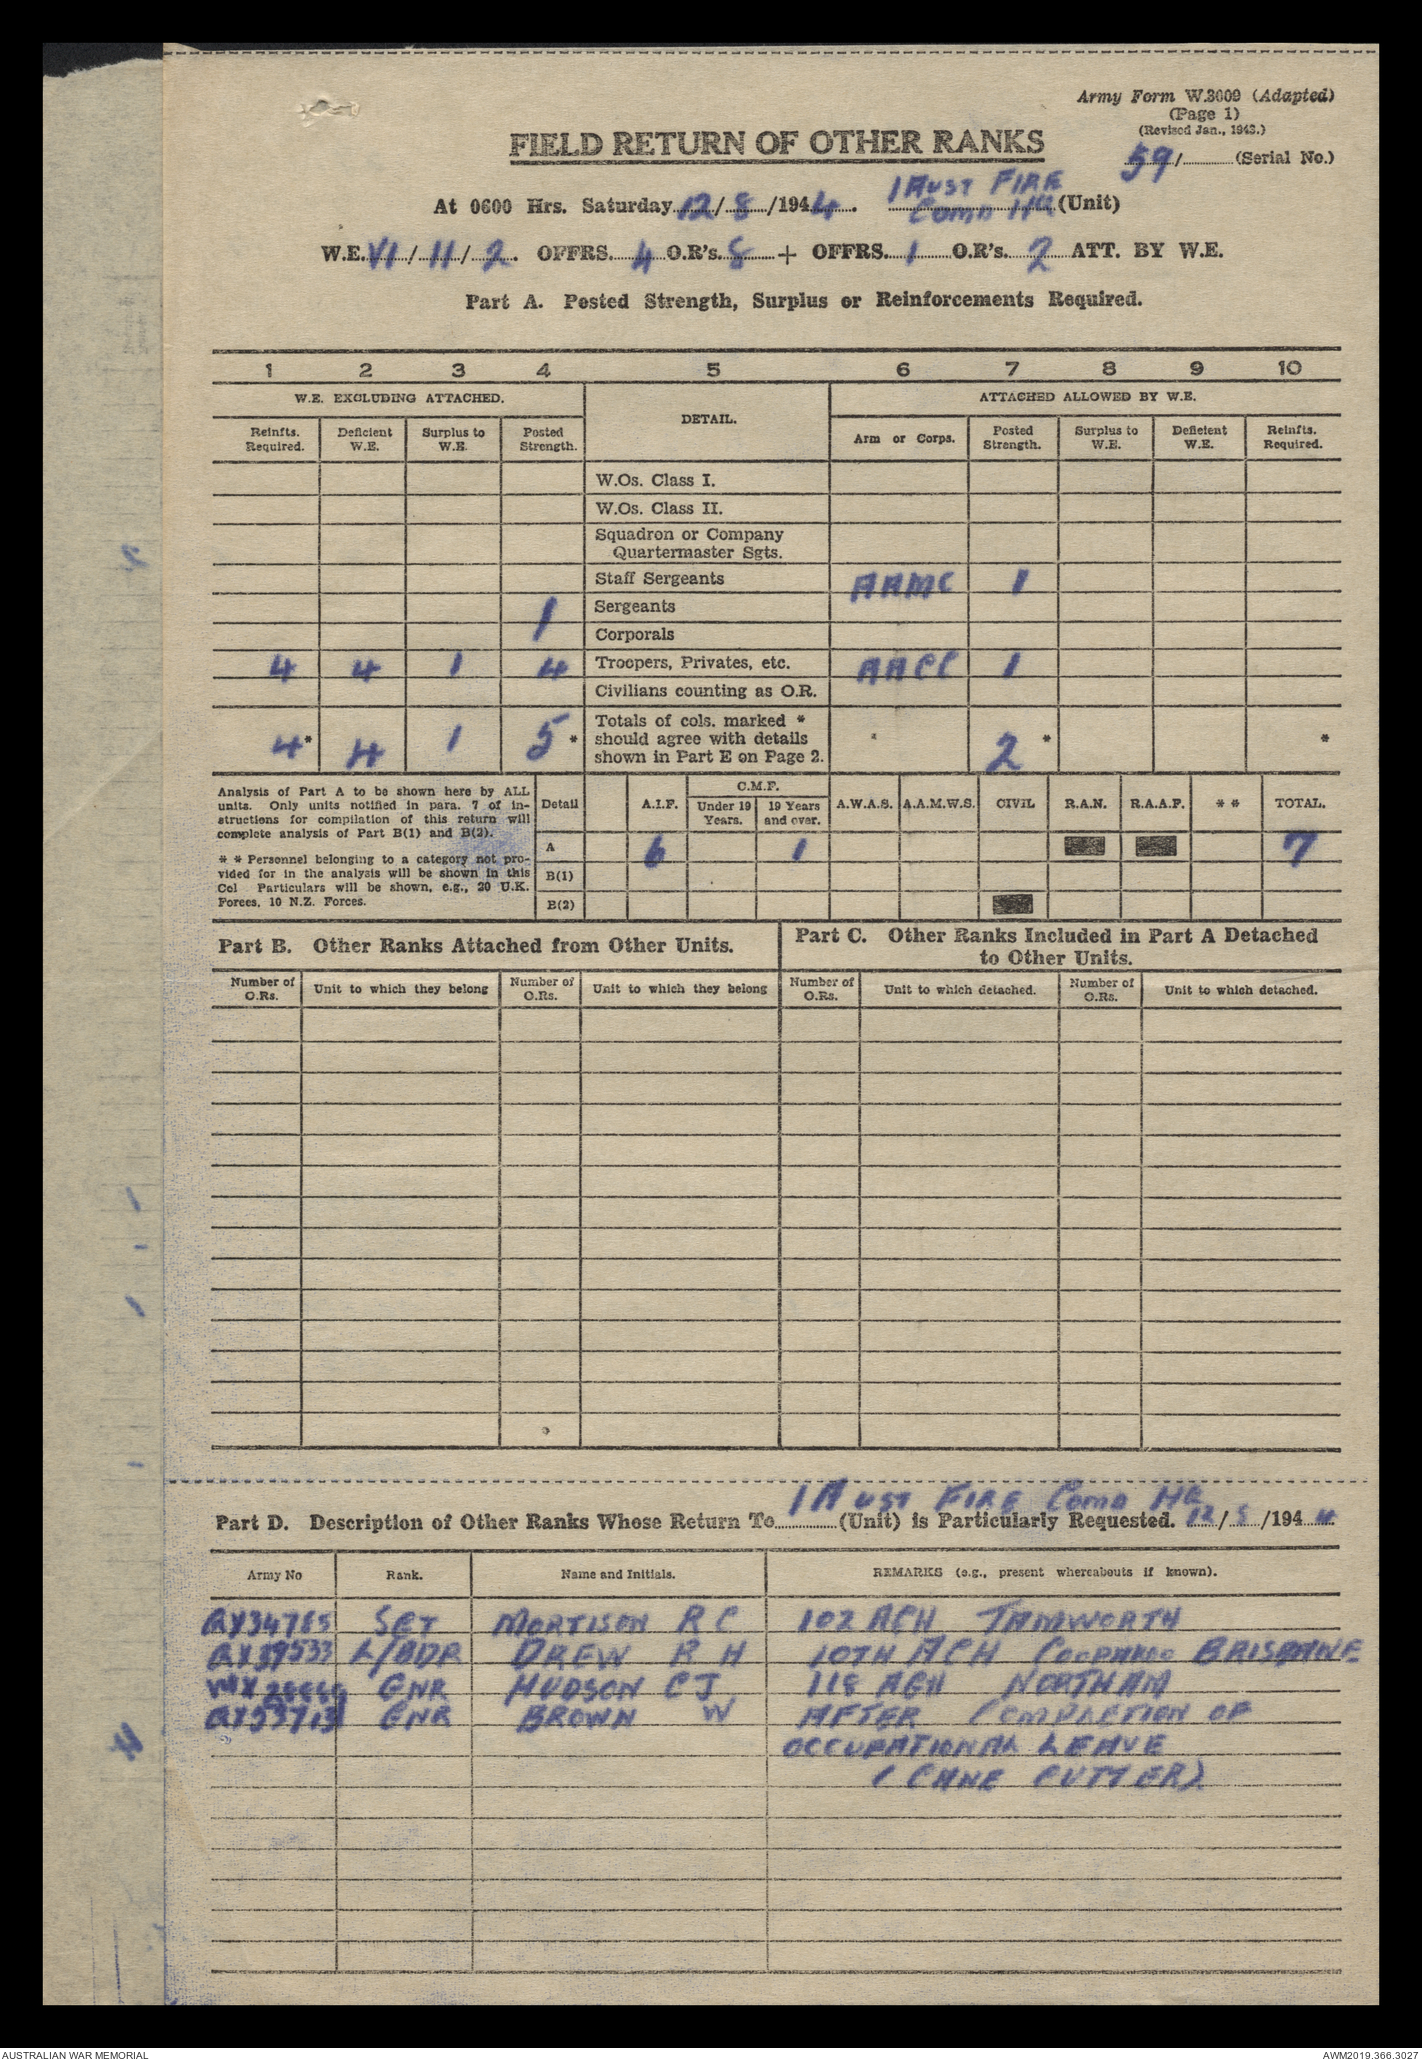 Army Form W.3009 (Adapted)
(Page 1)
(Revised Jan., 1943.)
FIELD RETURN OF OTHER RANKS
59/ (Serial No.)
At 0600 Hrs. Saturday 12/ 8 /1944. 1 Aust FIRE Comd HQ (Unit)
W.E. VI / 11 / 2 . OFFRS. 4 O.R's. 8 + OFFRS. 1 O.R's. 2 ATT. BY W.E.
Part A. Posted Strength, Surplus or Reinforcements Required.
1 2 3 4 5 6 7 8 9 10
W.E. EXCLUDING ATTACHED. DETAIL. ATTACHED ALLOWED BY W.E.
Reinfts. Required. Deficient W.E. Surplus to W.E. Posted Strength. Arm or Corps. Posted Strength. Surplus to W.E. Deficient W.E. Reinfts. Required.
W.Os. Class I.
W.Os. Class II.
Squadron or Company
Quartermaster Sgts.
Staff Sergeants AAMC 1
1 Sergeants
Corporals
4 4 1 4 Troopers, Privates, etc. AACC 1
Civilians counting as O.R.
4* 4 1 5* Totals of cols. marked * should agree with details shown in Part E on Page 2. 2* *
Analysis of Part A to be shown here by ALL
units. Only units notified in para. 7 of in-
structions for compilation of this return will
complete analysis of Part B(1) and B(2).
* * Personnel belonging to a category not pro-
vided for in the analysis will be shown in this
Col Particulars will be shown, e.g., 20 U.K.
Forces, 10 N.Z. Forces.
Detail A.I.F. C.M.F. Under 19 Years. 19 Years and over. A.W.A.S. A.A.M.W.S. CIVIL R.A.N. R.A.A.F. * * TOTAL.
A 6 1 7
B(1)
B(2)
Part B. Other Ranks Attached from Other Units.
Part C. Other Ranks Included in Part A Detached
to Other Units.
Number of O.Rs. Unit to which they belong Number of O.Rs. Unit to which they belong Number of O.Rs. Unit to which detached. Number of O.Rs. Unit to which detached.
1 Aust FIRE Comd HQ
Part D. Description of Other Ranks Whose Return To (Unit) is Particularly Requested. 12/ 8 /194 4
Army No Rank. Name and Initials. REMARKS (e.g., present whereabouts if known).
SGT R C 102 ACH TAMWORTH
L/BDR DREW R H ACH BRISBANE
GNR HUDSON C J 118 AGH NORTHAM
GNR BROWN W AFTER COMPLETION OF
OCCUPATIONAL LEAVE
(CANE CUTTER)
AUSTRALIAN WAR MEMORIAL
AWM2019.366.3027